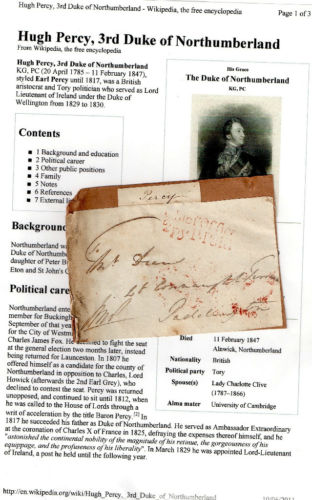 Hugh Percy, 3rd Duke of Northumberland - Wikipedia, the free encyclopedia
Page 1 of 3
Hugh Percy, 3rd Duke of Northumberland
From Wikipedia, the free encyclopedia
Hugh Percy, 3rd Duke of Northumberland
KG, PC (20 April 1785 – 11 February 1847),
styled Earl Percy until 1817, was a British
aristocrat and Tory politician who served as Lord
Lieutenant of Ireland under the Duke of
Wellington from 1829 to 1830.
His Grace
The Duke of Northumberland
KG, PC
Contents
1 Background and education
2 Political career
3 Other public positions
4 Family
5 Notes
6 References
7 External
Percy
Background
Northumberland
Duke of Northumb
daughter of Peter B
Eton and St John's C
Political care
Northumberland ente
member for Buckingh
September of that yea
for the City of Westm
Charles James Fox. He to fight the seat
at the general election two months later, instead
being returned for Launceston. In 1807 he
offered himself as a candidate for the county of
Northumberland in opposition to Charles, Lord
Howick (afterwards the 2nd Earl Grey), who
declined to contest the seat. Percy was returned
unopposed, and continued to sit until 1812, when
he was called to the House of Lords through a
writ of acceleration by the title Baron Percy.[2] In
1817 he succeeded his father as Duke of Northumberland. He served as Ambassador Extraordinary
at the coronation of Charles X of France in 1825, defraying the expenses thereof himself, and he
"astonished the continental nobility of the magnitude of his retinue, the gorgeousness of his
equipage, and the profuseness of his liberality". In March 1829 he was appointed Lord-Lieutenant
of Ireland, a post he held until the following year.
Died 11 February 1847
Alnwick, Northumberland
Nationality British
Political party Tory
Spouse(s) Lady Charlotte Clive
(1787–1866)
Alma mater University of Cambridge
http://en.wikipedia.org/wiki/Hugh_Percy,_3rd_Duke_of_Northumberland